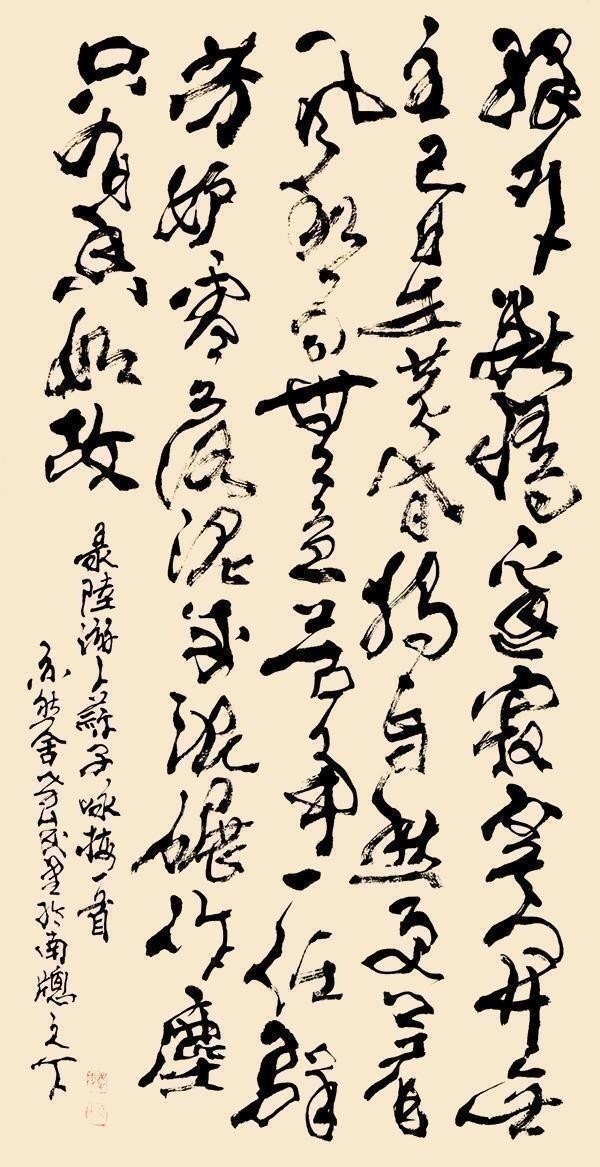 驛外斷橋邊寂寞開無
主已是黄昏獨自愁更着
風和雨無意苦争一任群
芳妒零落泥成泥碾作塵
只有香如故
录陸游卜算子咏梅一首
於南窗之下